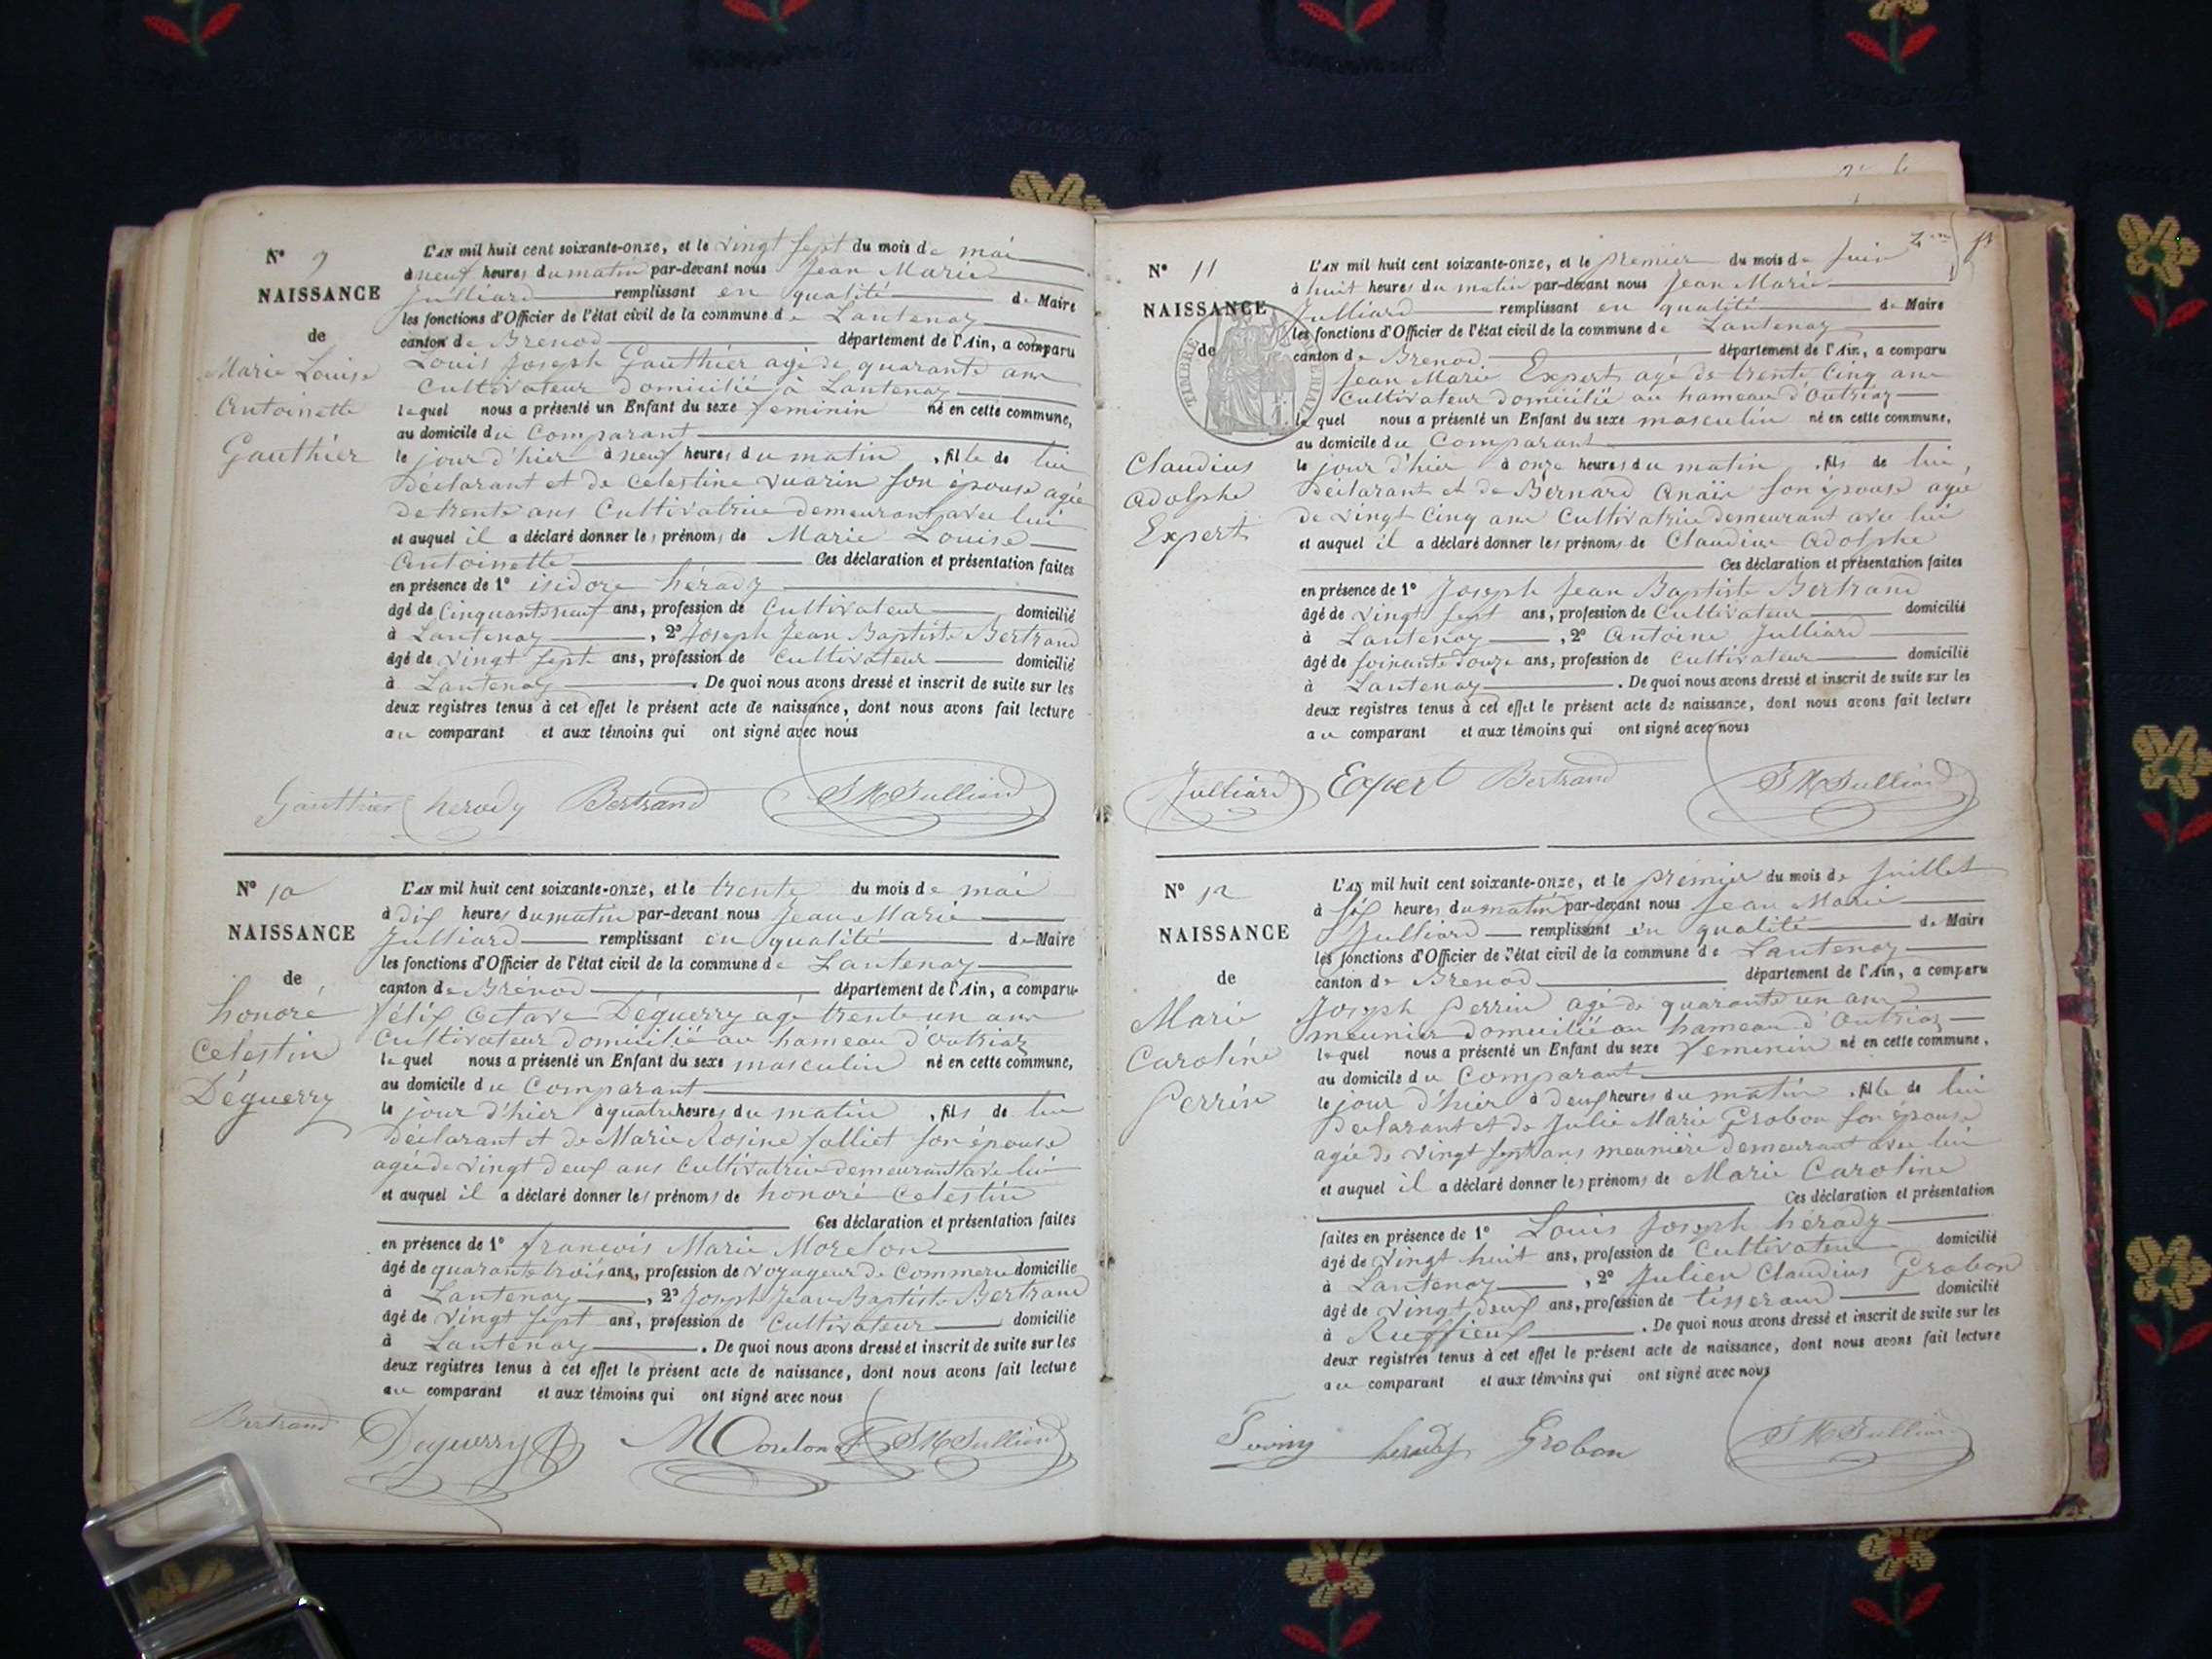 N° 9
NAISSANCE
de
Marie Louise
Antoinette
Gauthier
L'AN mil huit cent soixante-onze, et le vingt sept du mois de mai
à neuf heures du matin par-devant nous Jean Marie
Julliard remplissant en qualité de Maire
les fonctions d'Officier de l'état civil de la commune de Lantenay
canton de Brenod département de l'Ain, a comparu
Louis Joseph Gauthier agé de quarante ans
Cultivateur domicilié à Lantenay
lequel nous a présenté un Enfant du sexe feminin né en cette commune,
au domicile du Comparant
le jour d'hier à neuf heures du matin, fille de lui
Déclarant et de Celestine Vuarin son épouse agée
de trente ans Cultivatrice demeurant avec lui
et auquel il a déclaré donner les prénoms de Marie Louise
Antoinette Ces déclaration et présentation faites
en présence de 1° isidore hérody
âgé de Cinquante neuf ans, profession de Cultivateur domicilié
à Lantenay, 2° Joseph Jean Baptiste Bertrand
âgé de vingt sept ans, profession de Cultivateur domicilié
à Lantenay. De quoi nous avons dressé et inscrit de suite sur les
deux registres tenus à cet effet le présent acte de naissance, dont nous avons fait lecture
au comparant et aux témoins qui ont signé avec nous
Gauthier herody Bertrand JM Julliard
N° 10
NAISSANCE
de
honoré
Celestin
Déguerry
L'AN mil huit cent soixante-onze, et le trente du mois de mai
à dix heures du matin par-devant nous Jean Marie
Julliard remplissant en qualité de Maire
les fonctions d'Officier de l'état civil de la commune de Lantenay
canton de Brenod département de l'Ain, a comparu
félix Octave Déguerry agé trente un ans
Cultivateur domicilié au hameau d'Outriaz
lequel nous a présenté un Enfant du sexe masculin né en cette commune,
au domicile du Comparant
le jour d'hier à quatre heures du matin, fils de lui
Déclarant et de Marie Rosine Jolliet son épouse
agée de vingt deux ans Cultivatrice demeurant avec lui
et auquel il a déclaré donner les prénoms de honoré Celestin
Ces déclaration et présentation faites
en présence de 1° francois Marie Morelon
âgé de quarante trois ans, profession de voyageur de Commerce domicilié
à Lantenay, 2° Joseph Jean Baptiste Bertrand
âgé de vingt sept ans, profession de Cultivateur domicilié
à Lantenay. De quoi nous avons dressé et inscrit de suite sur les
deux registres tenus à cet effet le présent acte de naissance, dont nous avons fait lecture
au comparant et aux témoins qui ont signé avec nous
Bertrand Deguerry JM Julliard
N° 11
NAISSANCE
de
TIMBRE
Claudius
Adolphe
Expert
L'AN mil huit cent soixante-onze, et le premier du mois de juin
à huit heures du matin par-devant nous Jean Marie
Julliard remplissant en qualité de Maire
les fonctions d'Officier de l'état civil de la commune de Lantenay
canton de Brenod département de l'Ain, a comparu
Jean Marie Expert agé de trente Cinq ans
Cultivateur domicilié au hameau d'Outriaz
lequel nous a présenté un Enfant du sexe masculin né en cette commune,
au domicile du Comparant
le jour d'hier à onze heures du matin, fils de lui,
Déclarant et de Bernard Anaïs son épouse agée
de vingt Cinq ans Cultivatrice demeurant avec lui
et auquel il a déclaré donner les prénoms de Claudius Adolphe
Ces déclaration et présentation faites
en présence de 1° Joseph Jean Baptiste Bertrand
âgé de vingt sept ans, profession de Cultivateur domicilié
à Lantenay, 2° Antoine Julliard
âgé de soixante douze ans, profession de Cultivateur domicilié
à Lantenay. De quoi nous avons dressé et inscrit de suite sur les
deux registres tenus à cet effet le présent acte de naissance, dont nous avons fait lecture
au comparant et aux témoins qui ont signé avec nous
Julliard Expert Bertrand JM Julliard
N° 12
NAISSANCE
de
Marie
Caroline
Perrin
L'AN mil huit cent soixante-onze, et le premier du mois de Juillet
à six heures du matin par-devant nous Jean Marie
Julliard remplissant en qualité de Maire
les fonctions d'Officier de l'état civil de la commune de Lantenay
canton de Brenod département de l'Ain, a comparu
Joseph Perrin agé de quarante un ans
meunier domicilié au hameau d'Outriaz
lequel nous a présenté un Enfant du sexe feminin né en cette commune,
au domicile du Comparant
le jour d'hier à deux heures du matin, fille de lui
Déclarant et de Julie Marie Grobon son épouse
agée de vingt sept ans meunière demeurant avec lui
et auquel il a déclaré donner les prénoms de Marie Caroline
Ces déclaration et présentation
faites en présence de 1° Louis Joseph hérody
âgé de vingt huit ans, profession de Cultivateur domicilié
à Lantenay, 2° Julien Claudius Grobon
âgé de vingt deux ans, profession de tisserand domicilié
à Ruffieux. De quoi nous avons dressé et inscrit de suite sur les
deux registres tenus à cet effet le présent acte de naissance, dont nous avons fait lecture
au comparant et aux témoins qui ont signé avec nous
herody Grobon JM Julliard